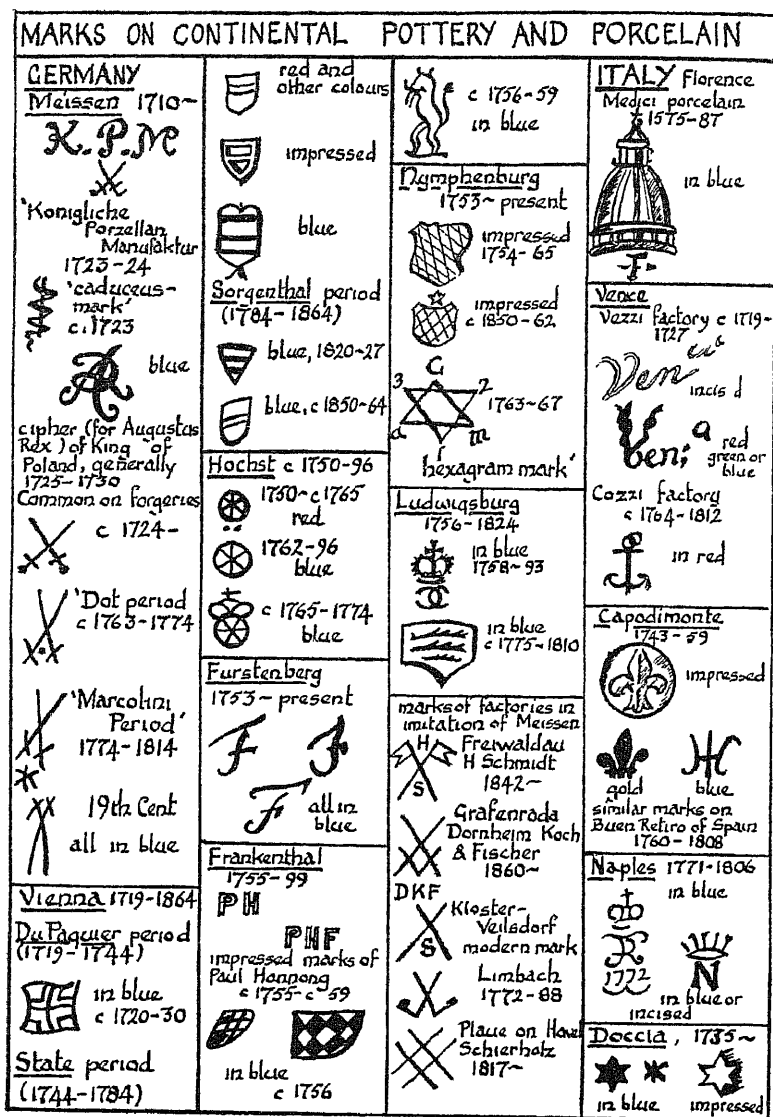 MARKS ON CONTINENTAL POTTERY AND PORCELAIN
GERMANY
Meissen 1710~
K.P.M
'Konigliche
Porzellan
Manufaktur
1723-24
'caduceus-
mark'
c.1723
AR
blue
cipher (for Augustus
Rex) of King of
Poland, generally
1725-1730
Common on forgeries
c 1724-
'Dot period
c 1763-1774
'Marcolini
Period'
1774-1814
19th Cent
all in blue
Vienna 1719-1864
Du Paquier period
(1719-1744)
in blue
c 1720-30
State period
(1744-1784)
red and
other colours
impressed
blue
Sorgenthal period
(1784-1864)
blue, 1820-27
blue, c 1850-64
Hochst c 1750-96
1750-c1765
red
1762-96
blue
c 1765-1774
blue
Furstenberg
1753~ present
F F
F all in
blue
Frankenthal
1755-99
PH
PHF
impressed marks of
Paul Hannong
c 1755-c 59
in blue
c 1756
c 1756-59
in blue
Nymphenburg
1753~ present
impressed
1754-65
impressed
c 1850-62
C
3 2
1763-67
a m
hexagram mark'
Ludwigsburg
1756-1824
in blue
1758-93
in blue
c 1775-1810
marks of factories in
imitation of Meissen
H Freiwaldau
H Schmidt
S 1842~
Grafenrada
Dornheim Koch
& Fischer
1860~
DKF
Kloster-
Veilsdorf
S modern mark
Limbach
1772-88
Plaue on Havel
Schierholz
1817~
ITALY Florence
Medici porcelain
1575-87
in blue
F
Venice
Vezzi factory c 1719-
1727
Ven a
incis d
Ven: a
red
green or
blue
Cozzi factory
c 1764-1812
in red
Capodimonte
1743-59
impressed
gold blue
similar marks on
Buen Retiro of Spain
1760-1808
Naples 1771-1806
in blue
R
1772
N
in blue or
incised
Doccia, 1735~
in blue impressed